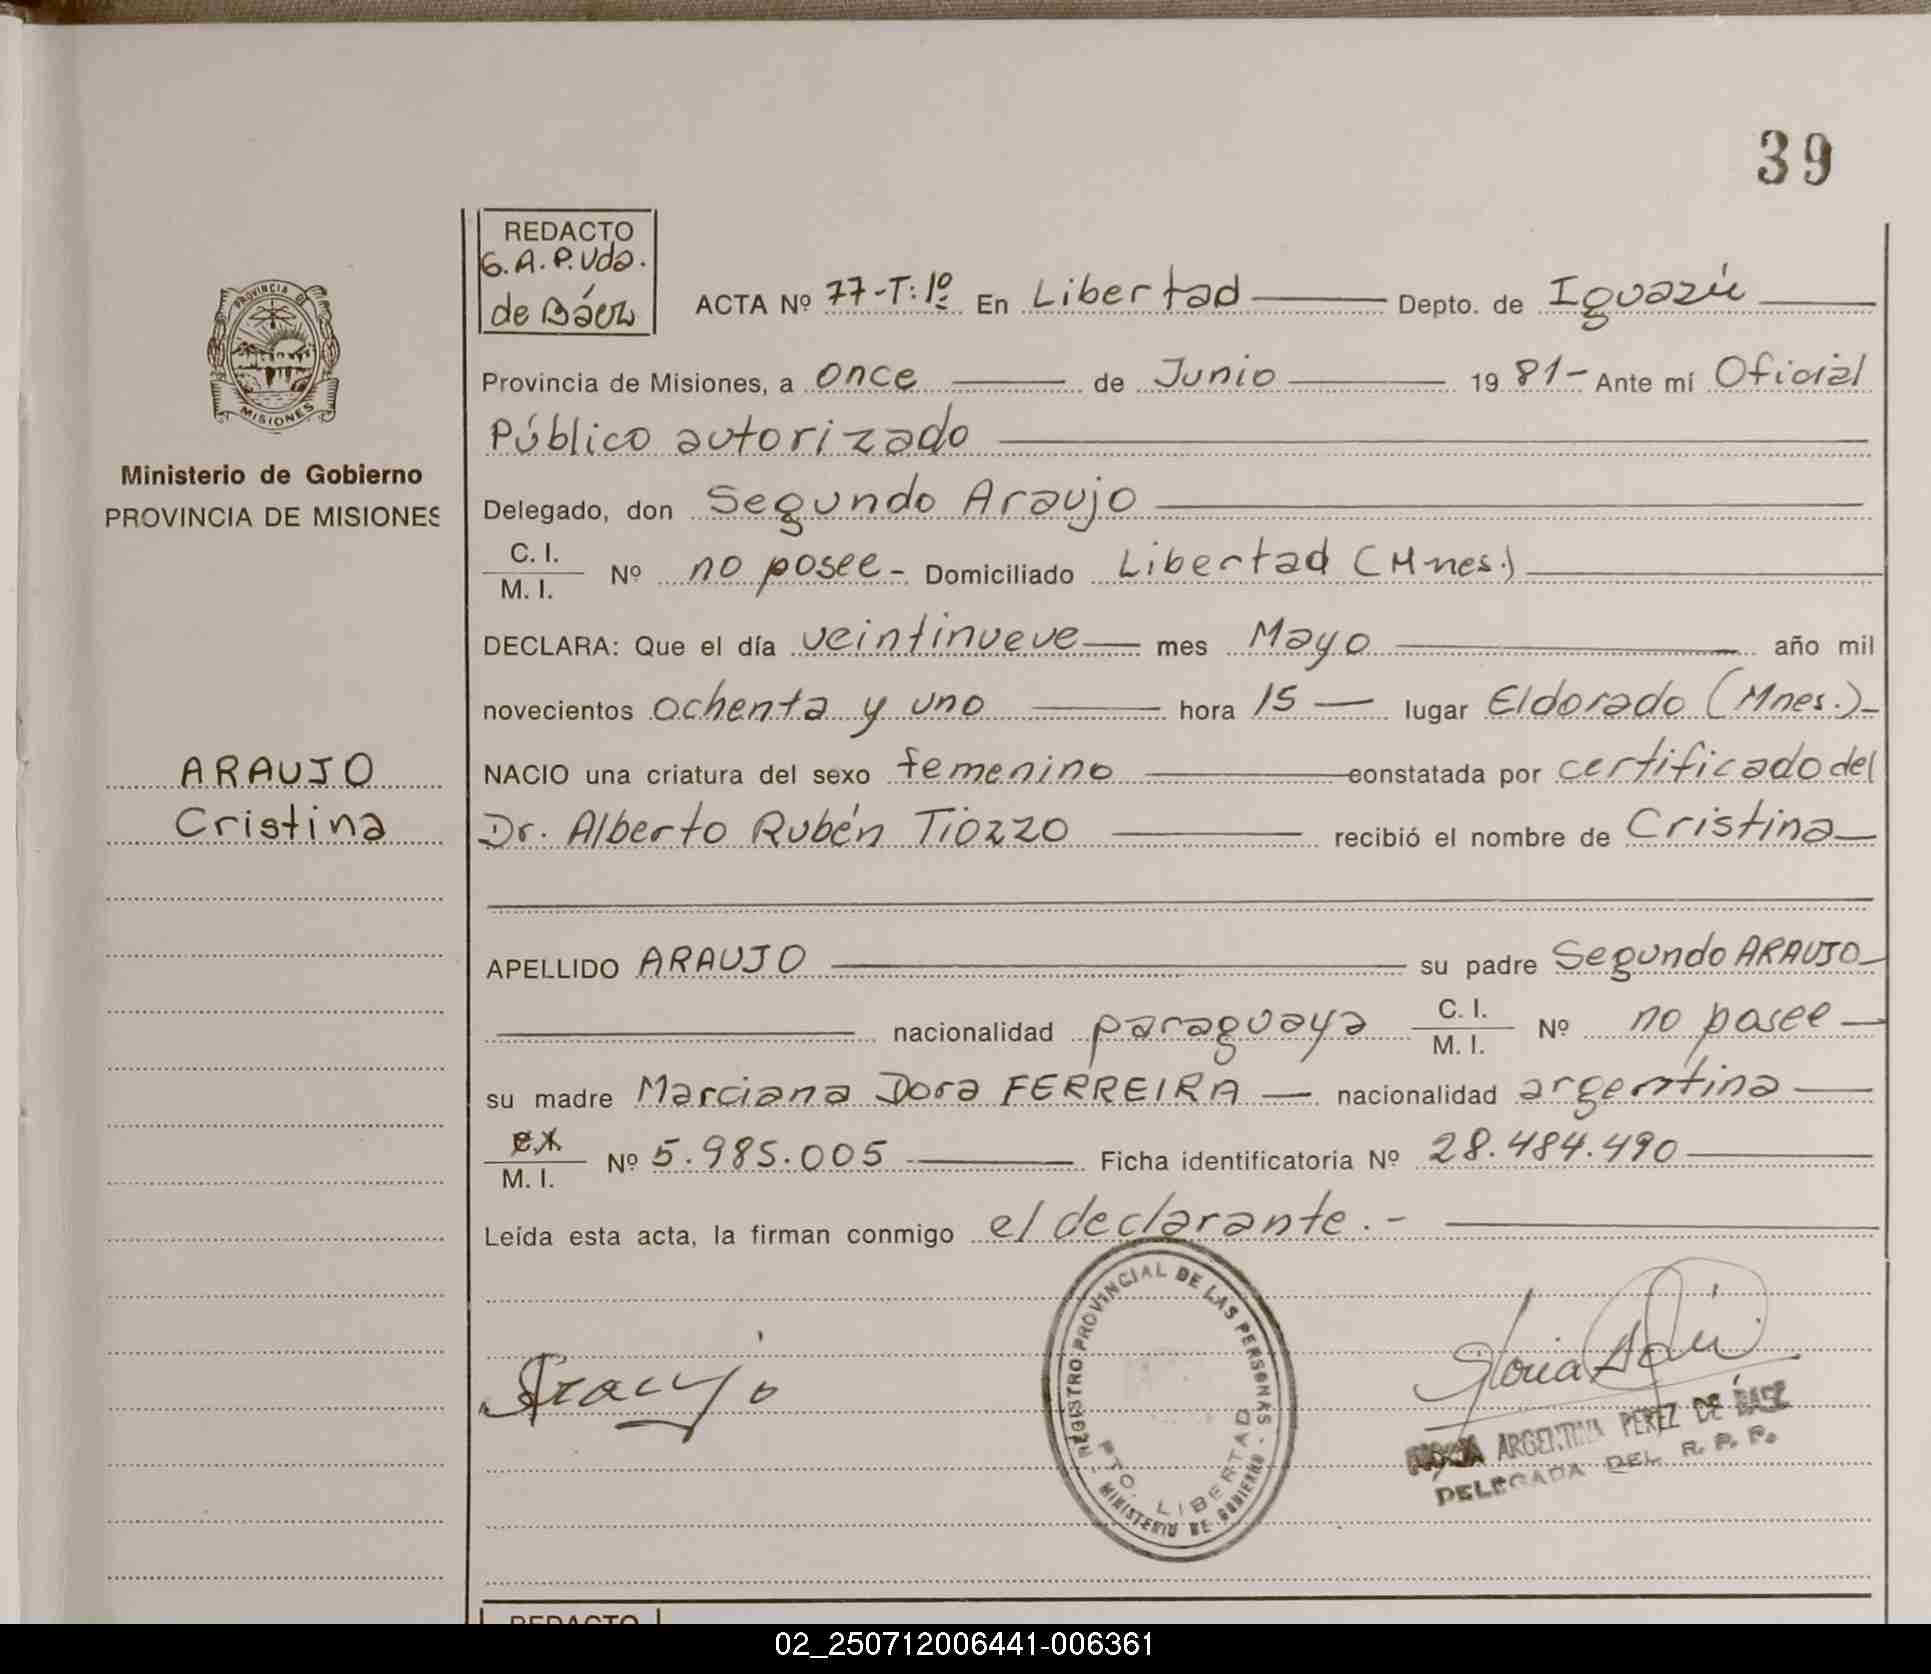 39
REDACTO
G. A. P. Vda.
de Báez
PROVINCIA DE
MISIONES
Ministerio de Gobierno
PROVINCIA DE MISIONES
ARAUJO
Cristina
ACTA Nº 77-T:1º En Libertad Depto. de Iguazú
Provincia de Misiones, a once de Junio 19 81- Ante mí Oficial
Público autorizado
Delegado, don Segundo Araujo
C. I.
M. I. Nº no posee - Domiciliado Libertad (Mnes.)
DECLARA: Que el día veintinueve mes Mayo año mil
novecientos ochenta y uno hora 15 lugar Eldorado (Mnes.)-
NACIO una criatura del sexo femenino constatada por certificado del
Dr. Alberto Rubén Tiozzo recibió el nombre de Cristina
APELLIDO ARAUJO su padre Segundo ARAUJO
nacionalidad paraguaya C. I. M. I. Nº no posee
su madre Marciana Dora FERREIRA nacionalidad argentina
M. I. Nº 5.985.005 Ficha identificatoria Nº 28.484.490
Leída esta acta, la firman conmigo el declarante.-
REGISTRO PROVINCIAL DE LAS PERSONAS -
PTO. LIBERTAD
MINISTERIO DE GOBIERNO
Araujo
Gloria
ARGENTINA PEREZ DE
DELEGADA DEL R. P. P.
REDACTO
02_250712006441-006361